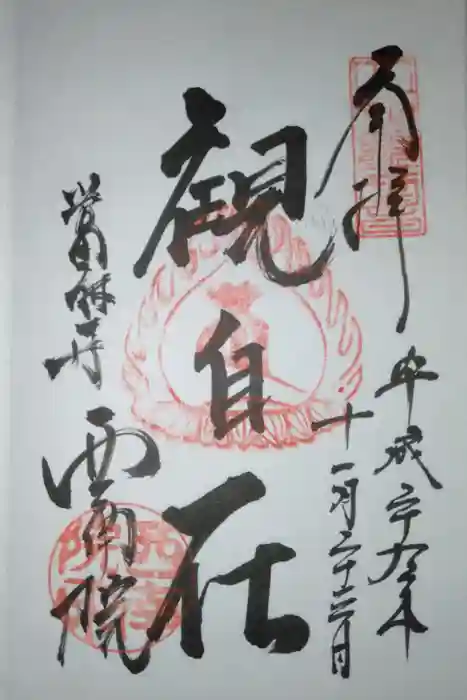 奉拝
平成二十九年
十一月二十六日
観自在
當麻寺
西南院